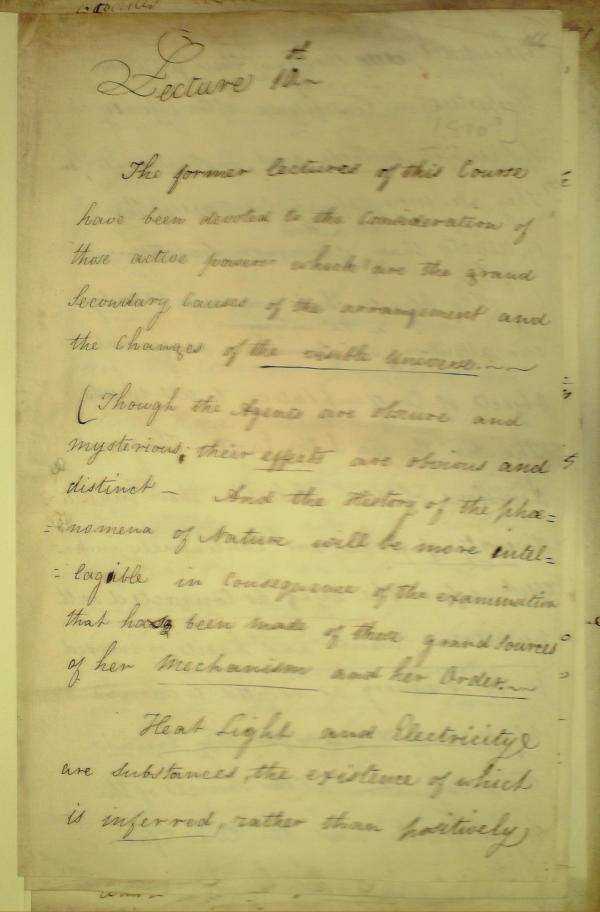 Lecture 10th
The former lectures of this Course
have been devoted to the Consideration of
those active powers which are the grand
Secondary Causes of the arrangement and
the Changes of the visible Universe.~~
(Though the Agents are obscure and
mysterious; their effects are obvious and
distinct — And the History of the phæ=
=nomena of Nature will be more intel=
=lagible in Consequence of the examination
that has been made of these grand Sources
of her Mechanism and her Order.~~
Heat Light and Electricity
are substances, the existence of which
is inferred, rather than positively